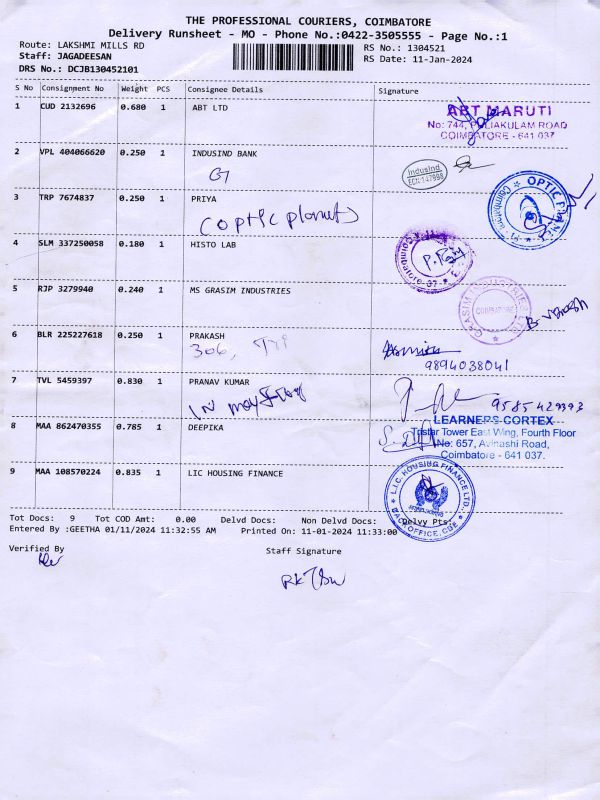 THE PROFESSIONAL COURIERS, COIMBATORE
Delivery Runsheet - MO - Phone No.:0422-3505555 - Page No.:1
Route: LAKSHMI MILLS RD
RS No.: 1304521
Staff: JAGADEESAN
RS Date: 11-Jan-2024
DRS No.: DCJB130452101
S No Consignment No Weight PCS Consignee Details Signature
1 CUD 2132696 0.680 1 ABT LTD
ABT MARUTI
No: 744, PULIAKULAM ROAD
COIMBATORE - 641 037
2 VPL 404066620 0.250 1 INDUSIND BANK
IndusInd
3 TRP 7674837 0.250 1 PRIYA
(optic planet)
OPTIC PLANET
4 SLM 337250058 0.180 1 HISTO LAB
Coimbatore-37
5 RJP 3279940 0.240 1 MS GRASIM INDUSTRIES
GRASIM INDUSTRIES LTD
COIMBATORE
6 BLR 225227618 0.250 1 PRAKASH
306,
9894038041
7 TVL 5459397 0.830 1 PRANAV KUMAR
9585429393
8 MAA 862470355 0.785 1 DEEPIKA
LEARNERS CORTEX
Tristar Tower East Wing, Fourth Floor
No: 657, Avinashi Road,
Coimbatore - 641 037.
9 MAA 108570224 0.835 1 LIC HOUSING FINANCE
L.I.C. HOUSING FINANCE LTD.,
BACK OFFICE, CBE
Tot Docs: 9 Tot COD Amt: 0.00 Delvd Docs: Non Delvd Docs: Delvy Pts:
Entered By :GEETHA 01/11/2024 11:32:55 AM Printed On: 11-01-2024 11:33:00
Verified By
Staff Signature